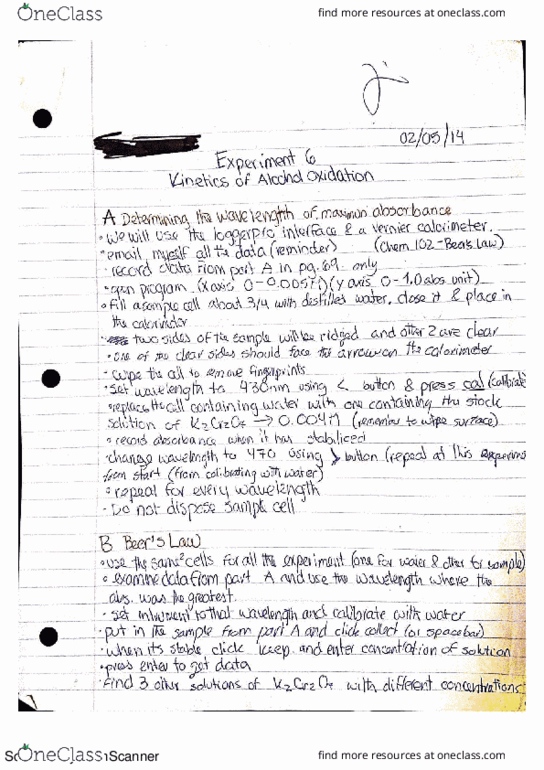 OneClass
find more resources at oneclass.com
02/05/14
Experiment 6
Kinetics of Alcohol Oxidation
A Determining the wavelength of maximum absorbance
• We will use the loggerpro interface & a vernier calorimeter.
• email myself all the data (reminder) (Chem 102-Beer's Law)
• record data from part A in pg. 69 only
• open program (x axis 0-0.005M) (y axis 0-1.0 abs unit)
• Fill a sample cell about 3/4 with distilled water, close it & place in
the calorimeter
• two sides of the sample will be ridged and other 2 are clear
• one of the clear sides should face the arrow on the calorimeter
• wipe the cell to remove fingerprints
• set wavelength to 430nm using < button & press cal (calibrate
• replace the cell containing water with one containing the stock
solution of K2Cr2O7 → 0.004M (remember to wipe surface)
• record absorbance when it has stabilized
• change wavelength to 470 using > button (repeat at this
from start (from calibrating with water)
• repeat for every wavelength
• Do not dispose sample cell
B Beer's Law
• use the same 2 cells for all the experiment (one for water & other for sample)
• examine data from part A and use the wavelength where the
abs. was the greatest.
• set instrument to that wavelength and calibrate with water
• put in the sample from part A and click collect (or spacebar)
• when its stable click keep and enter concentration of solution
• press enter to get data
• find 3 other solutions of K2Cr2O7 with different concentrations
OneClass
Scanner
find more resources at oneclass.com